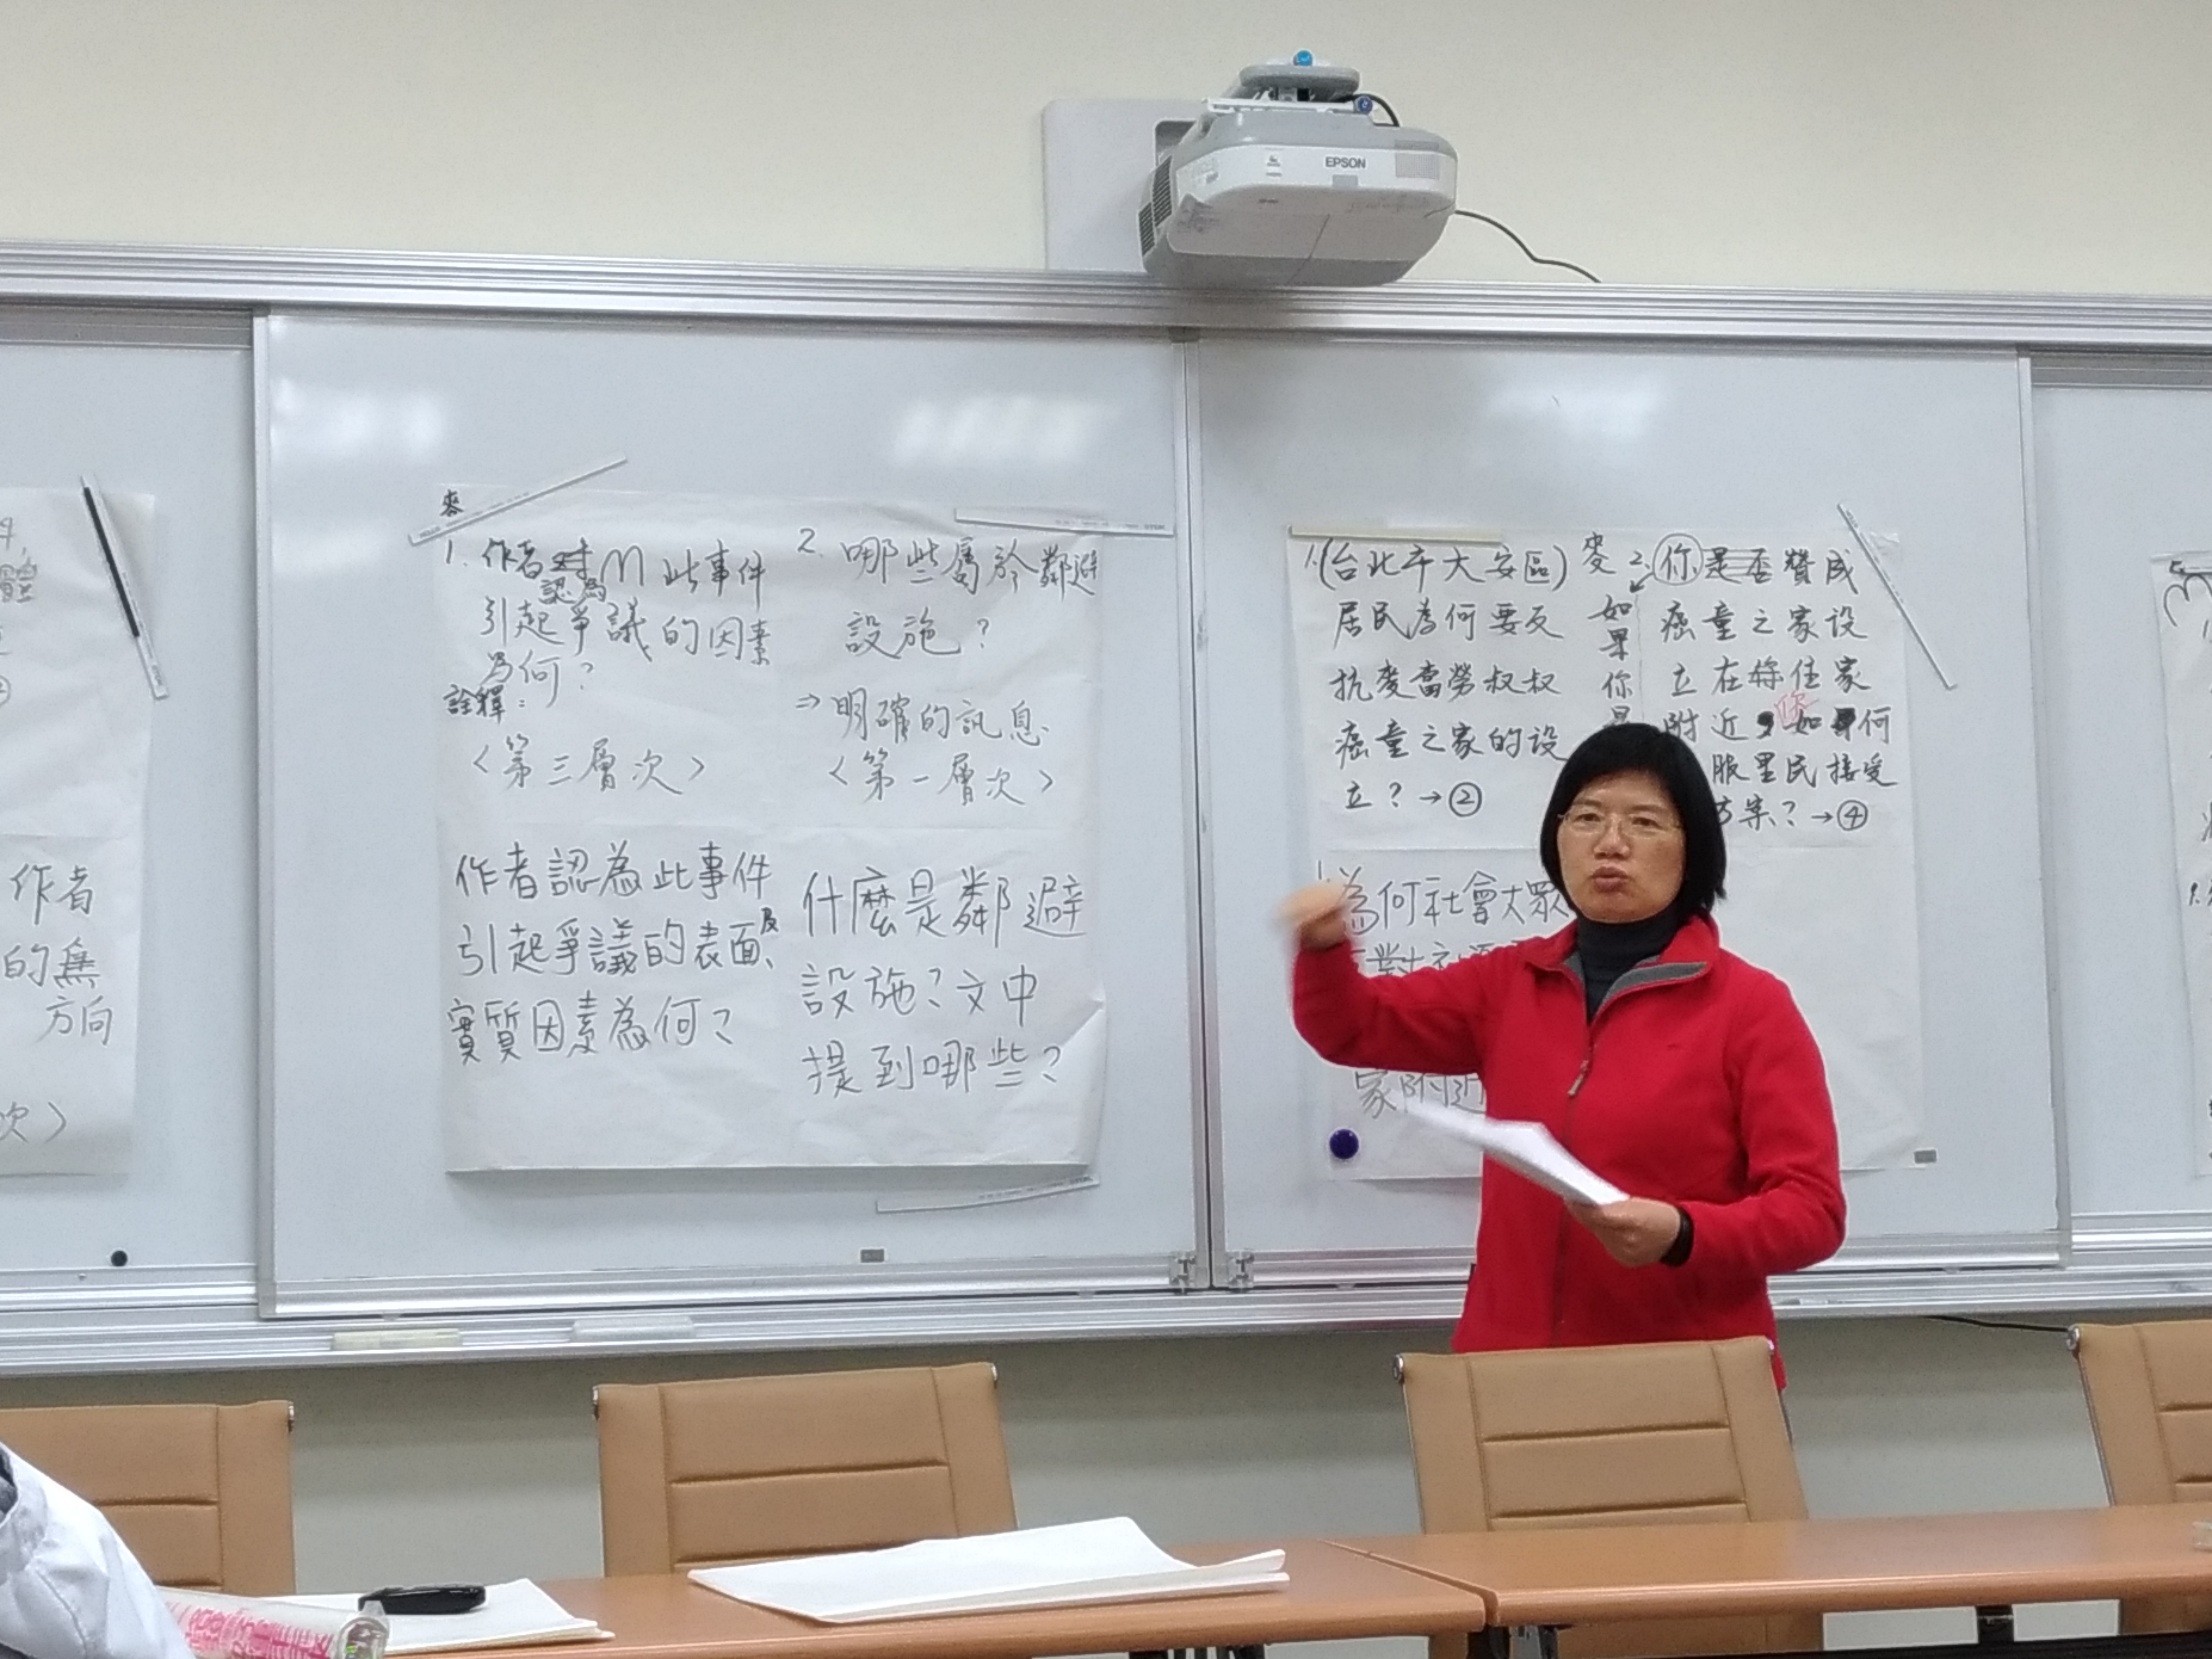 EPSON
麥
1. 作者對
認為
此事件
引起爭議的因素
為何?
詮釋:
<第三層次>
作者認為此事件
引起爭議的表面、及
實質因素為何?
2. 哪些屬於鄰避
設施?
⇒明確的訊息
<第一層次>
什麼是鄰避
設施?文中
提到哪些?
1.(台北市大安區)
居民為何要反
抗麥當勞叔叔
癌童之家的設
立?→②
為何社會大眾
家附近
麥
如果你是
2. 你是否贊成
癌童之家設
立在你住家
附近 如何
服里民接受
方案?→④
作者
的無
方向
次>